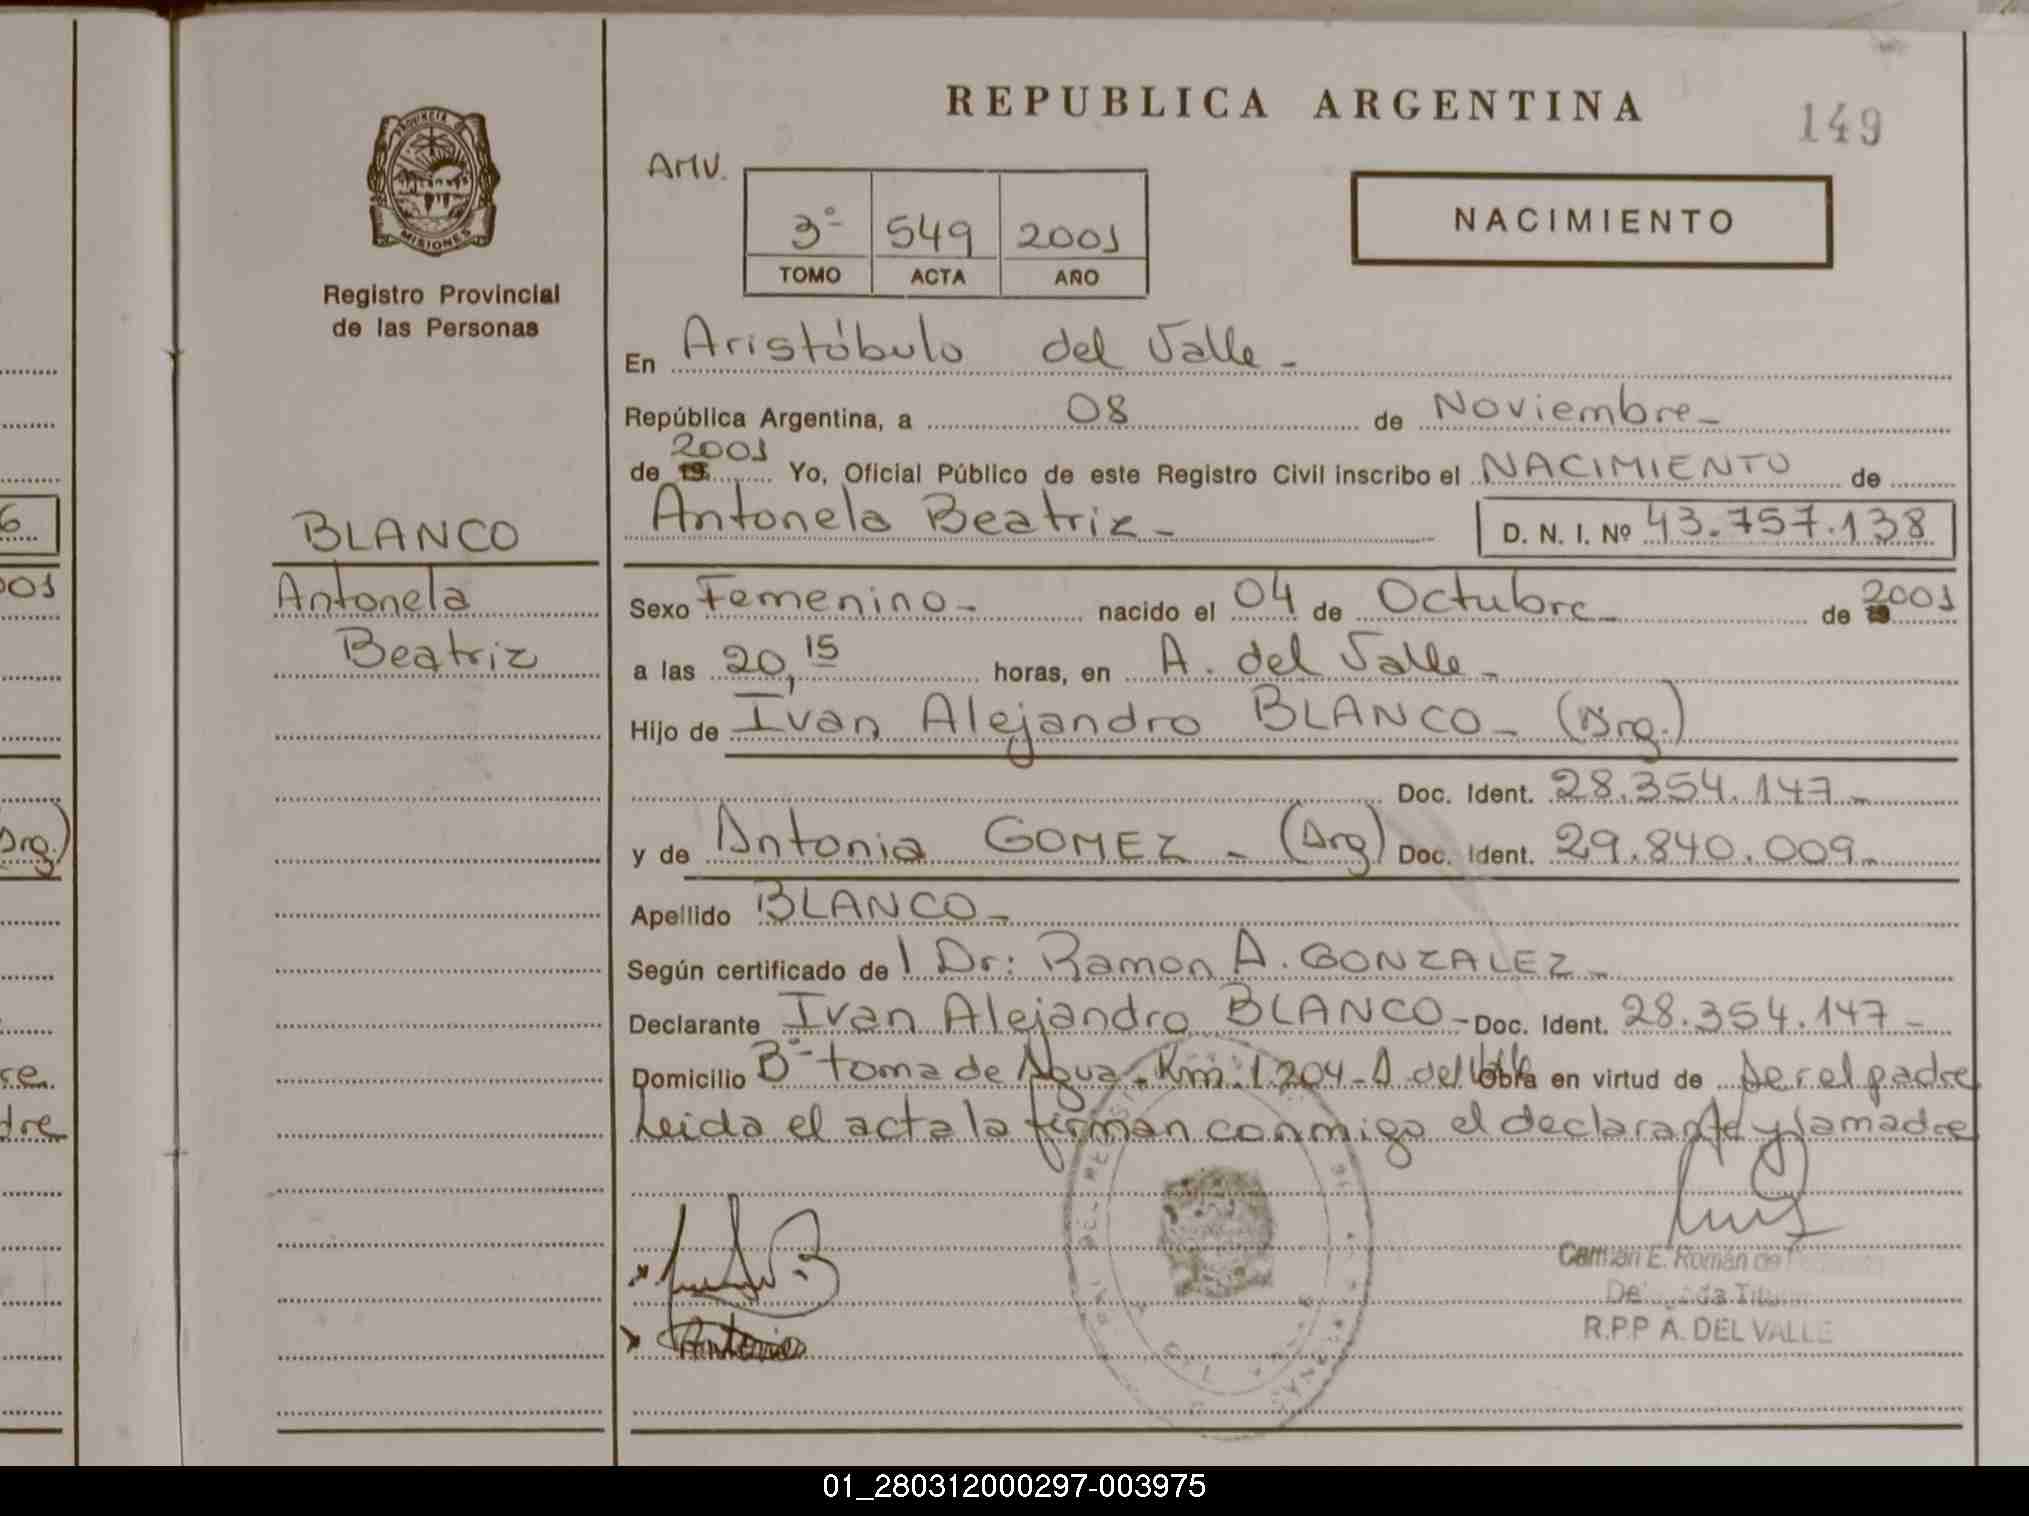 REPUBLICA ARGENTINA
149
PROVINCIA DE
MISIONES
Registro Provincial
de las Personas
AMV.
3º 549 2001
TOMO ACTA AÑO
NACIMIENTO
En Aristóbulo del Valle -
República Argentina, a 08 de Noviembre -
de 19 2001 Yo, Oficial Público de este Registro Civil inscribo el NACIMIENTO de
Antonela Beatriz - D. N. I. Nº 43.757.138
BLANCO
Antonela
Beatriz
Sexo Femenino - nacido el 04 de Octubre - de 19 2001
a las 20,15 horas, en A. del Valle -
Hijo de Ivan Alejandro BLANCO - (Arg.)
Doc. Ident. 28.354.147 -
y de Antonia GOMEZ - (Arg) Doc. Ident. 29.840.009 -
Apellido BLANCO -
Según certificado de Dr: Ramon A. GONZALEZ -
Declarante Ivan Alejandro BLANCO - Doc. Ident. 28.354.147 -
Domicilio Bº toma de Agua - Km. 1204 - A. del Valle Obra en virtud de ser el padre
Leida el acta la firman conmigo el declarante y la madre
Antonia
Román de
R.P.P A. DEL VALLE
6
001
Arg.)
re.
dre
01_280312000297-003975